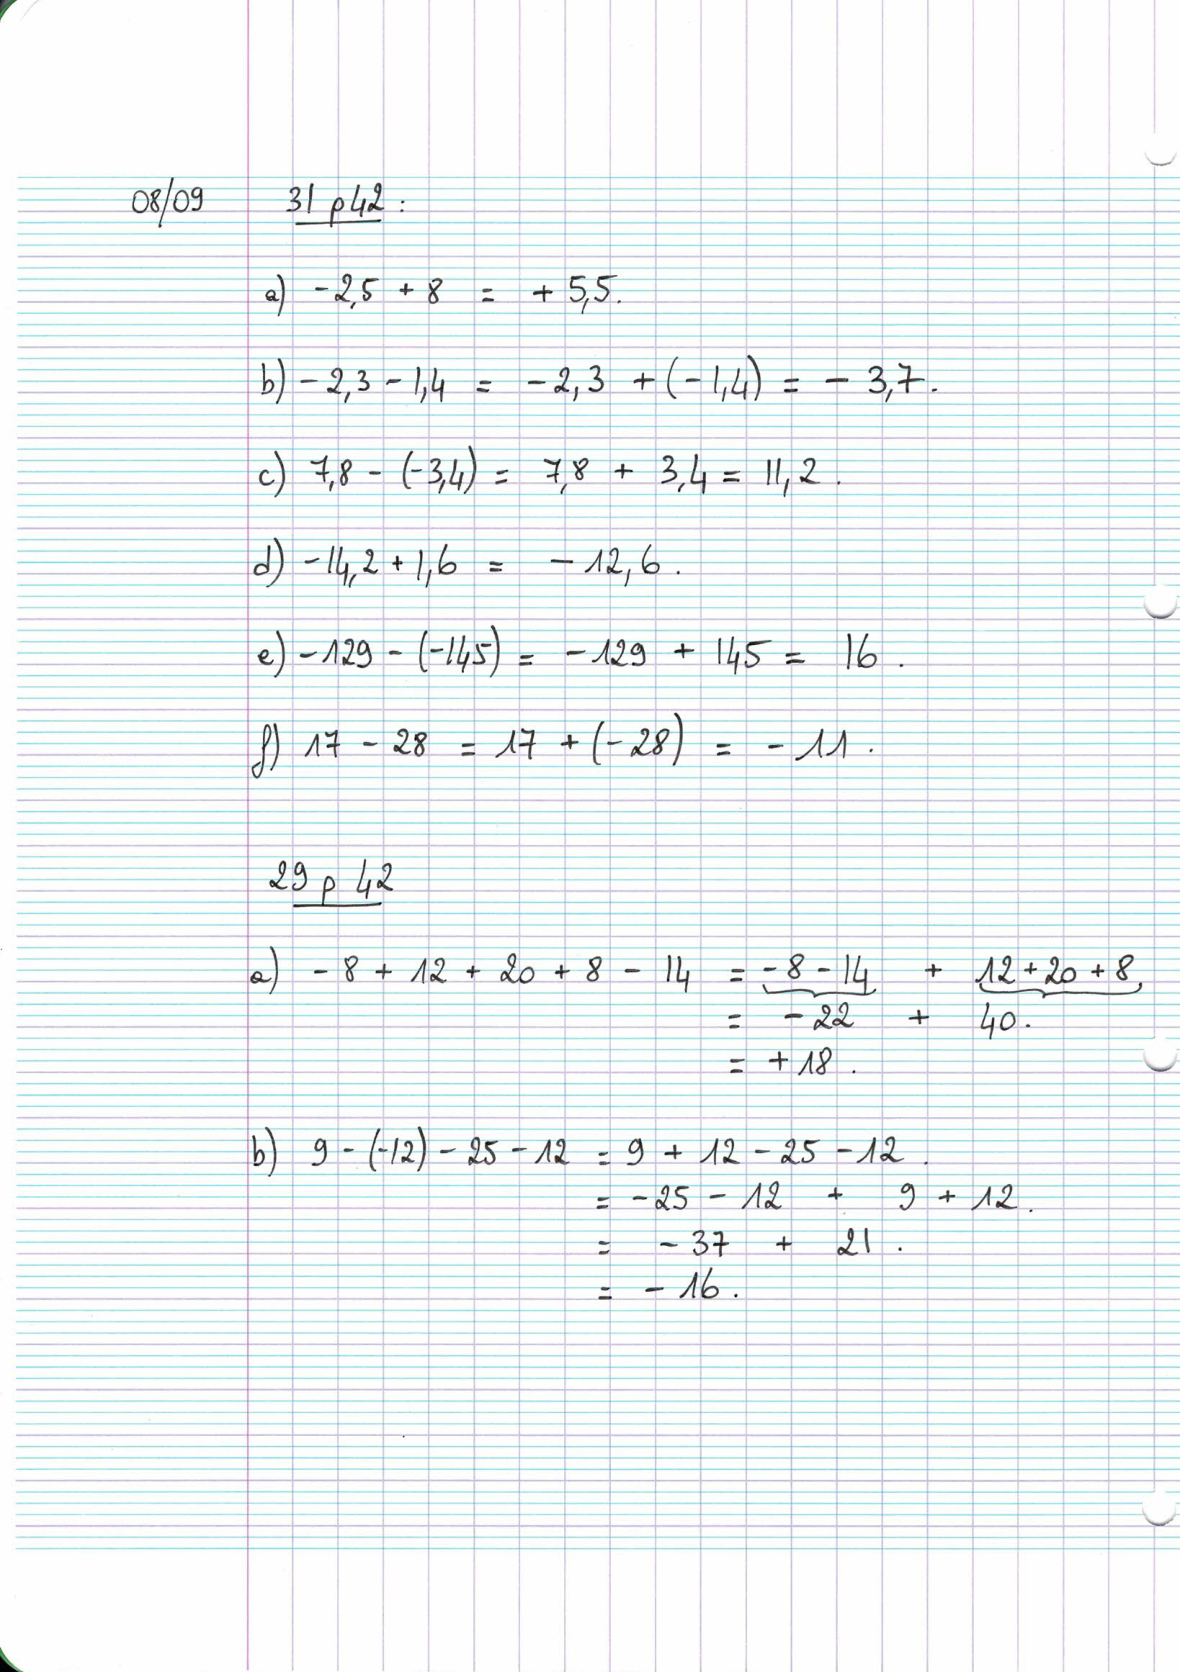 08/09 31 p 42 :
a) -2,5 + 8 = + 5,5.
b) -2,3 - 1,4 = -2,3 + (-1,4) = - 3,7.
c) 7,8 - (-3,4) = 7,8 + 3,4 = 11,2.
d) -14,2 + 1,6 = - 12,6.
e) -129 - (-145) = -129 + 145 = 16.
f) 17 - 28 = 17 + (-28) = - 11.
29 p 42
a) - 8 + 12 + 20 + 8 - 14 = -8 - 14 + 12 + 20 + 8
= -22 + 40.
= +18.
b) 9 - (-12) - 25 - 12 = 9 + 12 - 25 - 12.
= -25 - 12 + 9 + 12.
= -37 + 21.
= - 16.